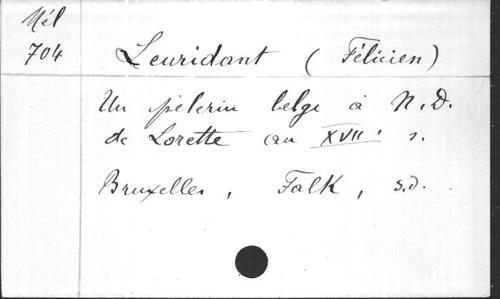 Mél
704
Leuridant (Félicien)
Un pèlerin belge à N.D.
de Lorette au XVIIe s.
Bruxelles, Falk, s.d.